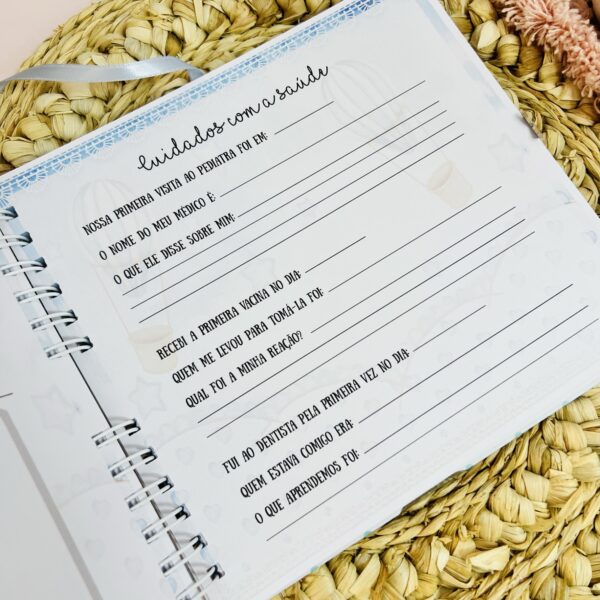 Cuidados com a saúde
NOSSA PRIMEIRA VISITA AO PEDIATRA FOI EM:
O NOME DO MEU MÉDICO É:
O QUE ELE DISSE SOBRE MIM:
RECEBI A PRIMEIRA VACINA NO DIA:
QUEM ME LEVOU PARA TOMÁ-LA FOI:
QUAL FOI A MINHA REAÇÃO?
FUI AO DENTISTA PELA PRIMEIRA VEZ NO DIA:
QUEM ESTAVA COMIGO ERA:
O QUE APRENDEMOS FOI: